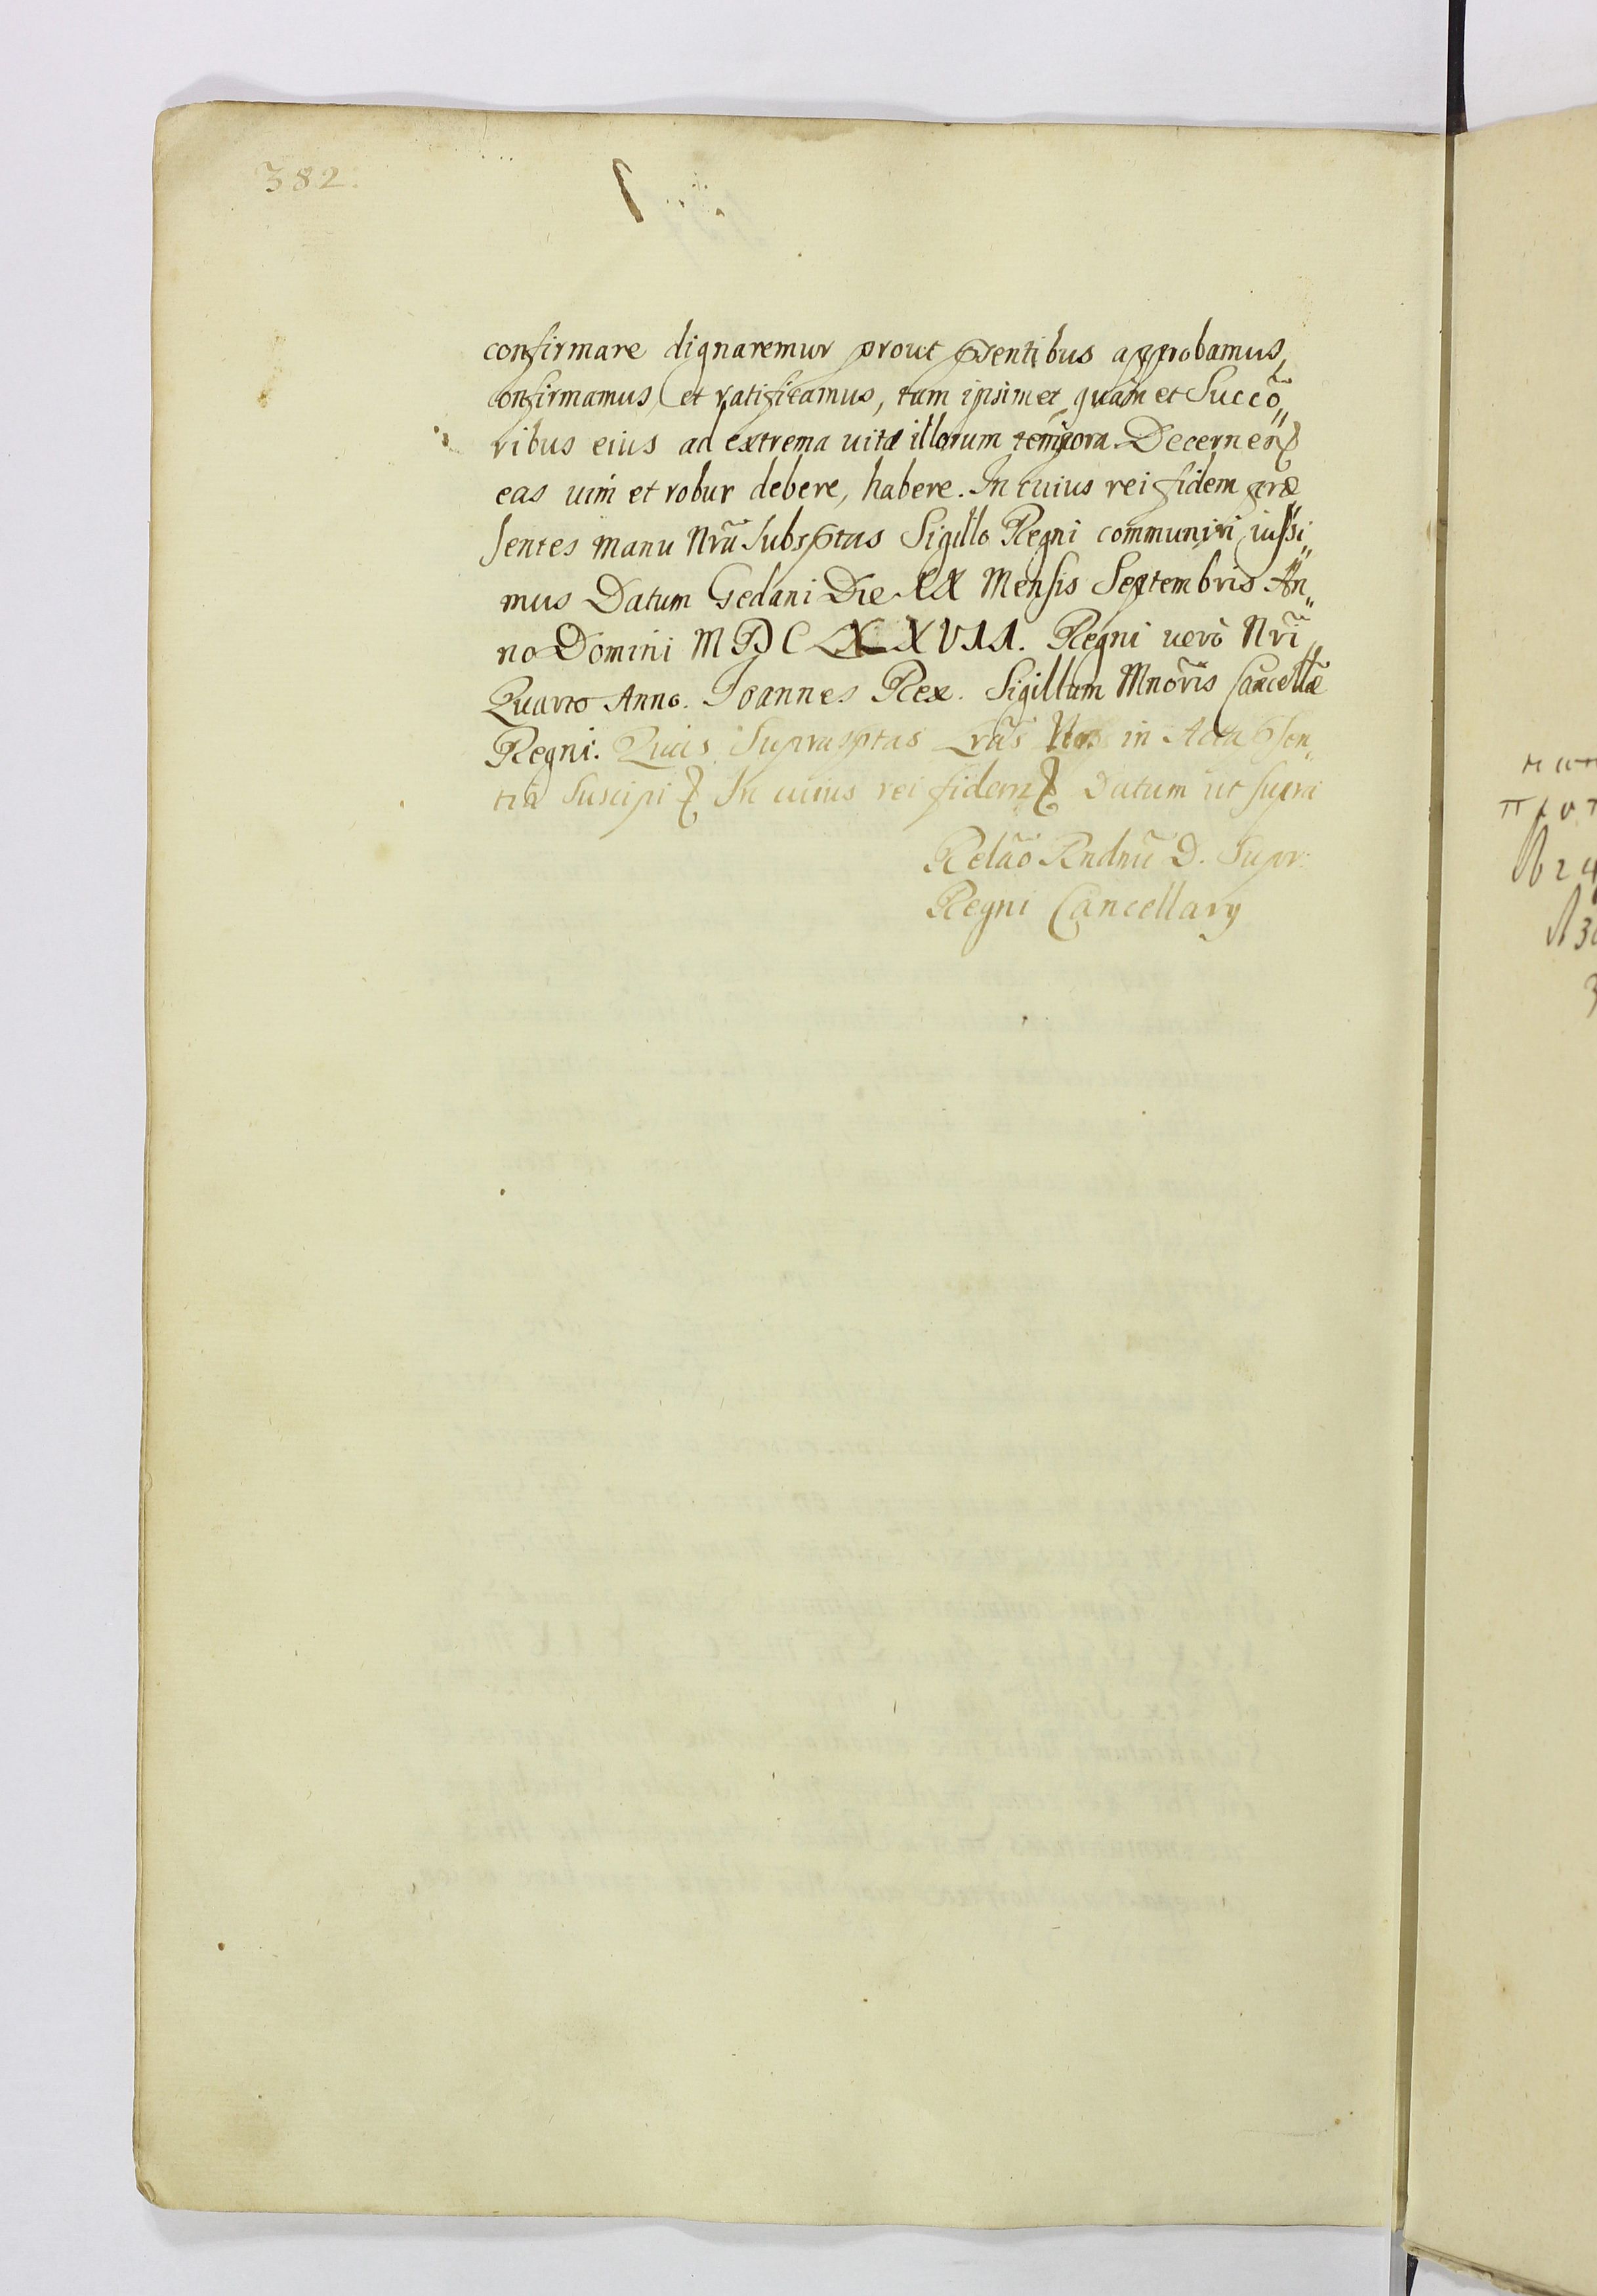 382.
confirmare dignaremur prout p̃sentibus approbamus,
confirmamus, et ratificamus, tam ipsimet quam et Succõ„
ribus eius ad extrema uitæ illorum tempora. Decernen
eas uim et robur debere, habere. In cuius rei fidem præ„
sentes manu Nrã subsptas Sigillo Regni communiri iussi„
mus Datum Gedani Die XX Mensis Septembris An„
no Domini MDCLXXVII. Regni uerò Nrĩ
Quarto Anno. Joannes Rex. Sigillum Mnõris Cancellæ
Regni. Quas Suprasptas Lrãs Nos in Acta p̃sen„
tia Suscipi In cuius rei fidem Datum ut supra
Relão Rndmĩ D. Supr:
Regni Cancellarÿ